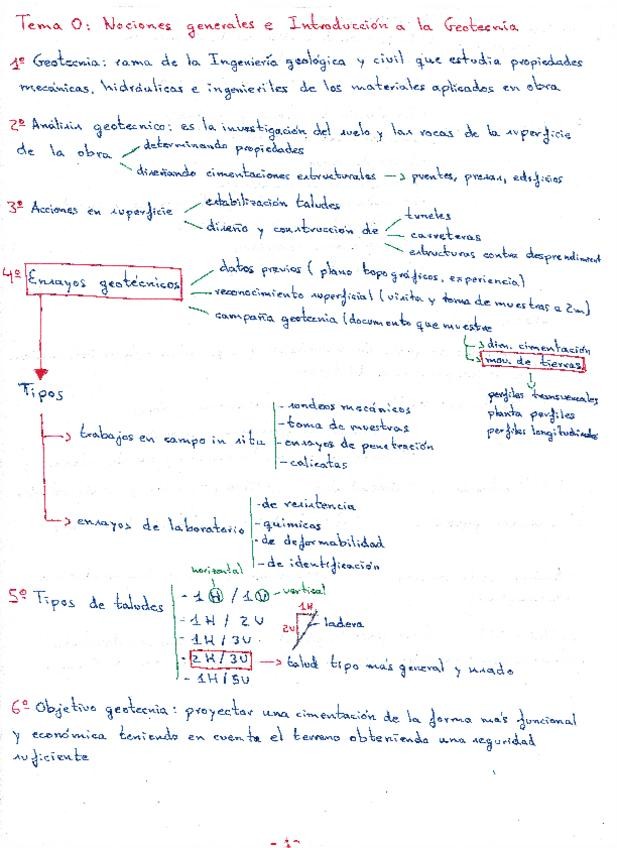 Tema 0: Nociones generales e Introducción a la Geotecnia
1º Geotecnia: rama de la Ingeniería geológica y civil que estudia propiedades
mecánicas, hidráulicas e ingenieriles de los materiales aplicados en obra
2º Análisis geotecnico: es la investigación del suelo y las rocas de la superficie
de la obra
determinando propiedades
diseñando cimentaciones estructurales → puentes, presas, edificios
3º Acciones en superficie
estabilización taludes
diseño y construcción de
tuneles
carreteras
estructuras contra desprendiment
4º Ensayos geotécnicos
datos previos (plano topográficos, experiencia)
reconocimiento superficial (visita y toma de muestras a 2m)
campaña geotecnia (documento que muestre
→ dim. cimentación
→ mov. de tierras
perfiles transversales
planta perfiles
perfiles longitudinales
Tipos
→ trabajos en campo in situ
- sondeos mecánicos
- toma de muestras
- ensayos de penetración
- calicatas
→ ensayos de laboratorio
- de resistencia
- quimicos
- de deformabilidad
- de identificación
5º Tipos de taludes
horizontal
- 1H / 1V - vertical
- 1H / 2V
- 1H / 3V
- 2H / 3V → talud tipo más general y usado
- 1H / 5V
1H
2V
ladera
6º Objetivo geotecnia: proyectar una cimentación de la forma más funcional
y económica teniendo en cuenta el terreno obteniendo una seguridad
suficiente
- 1 -